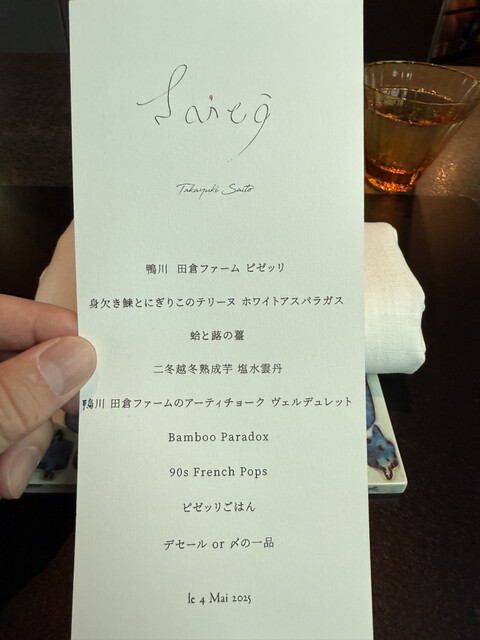 Saitō
Takayuki Saito
鴨川 田倉ファーム ピゼッリ
身欠き鰊とにぎりこのテリーヌ ホワイトアスパラガス
蛤と蕗の薹
二冬越冬熟成芋 塩水雲丹
鴨川 田倉ファームのアーティチョーク ヴェルデュレット
Bamboo Paradox
90s French Pops
ピゼッリごはん
デセール or 〆の一品
le 4 Mai 2025